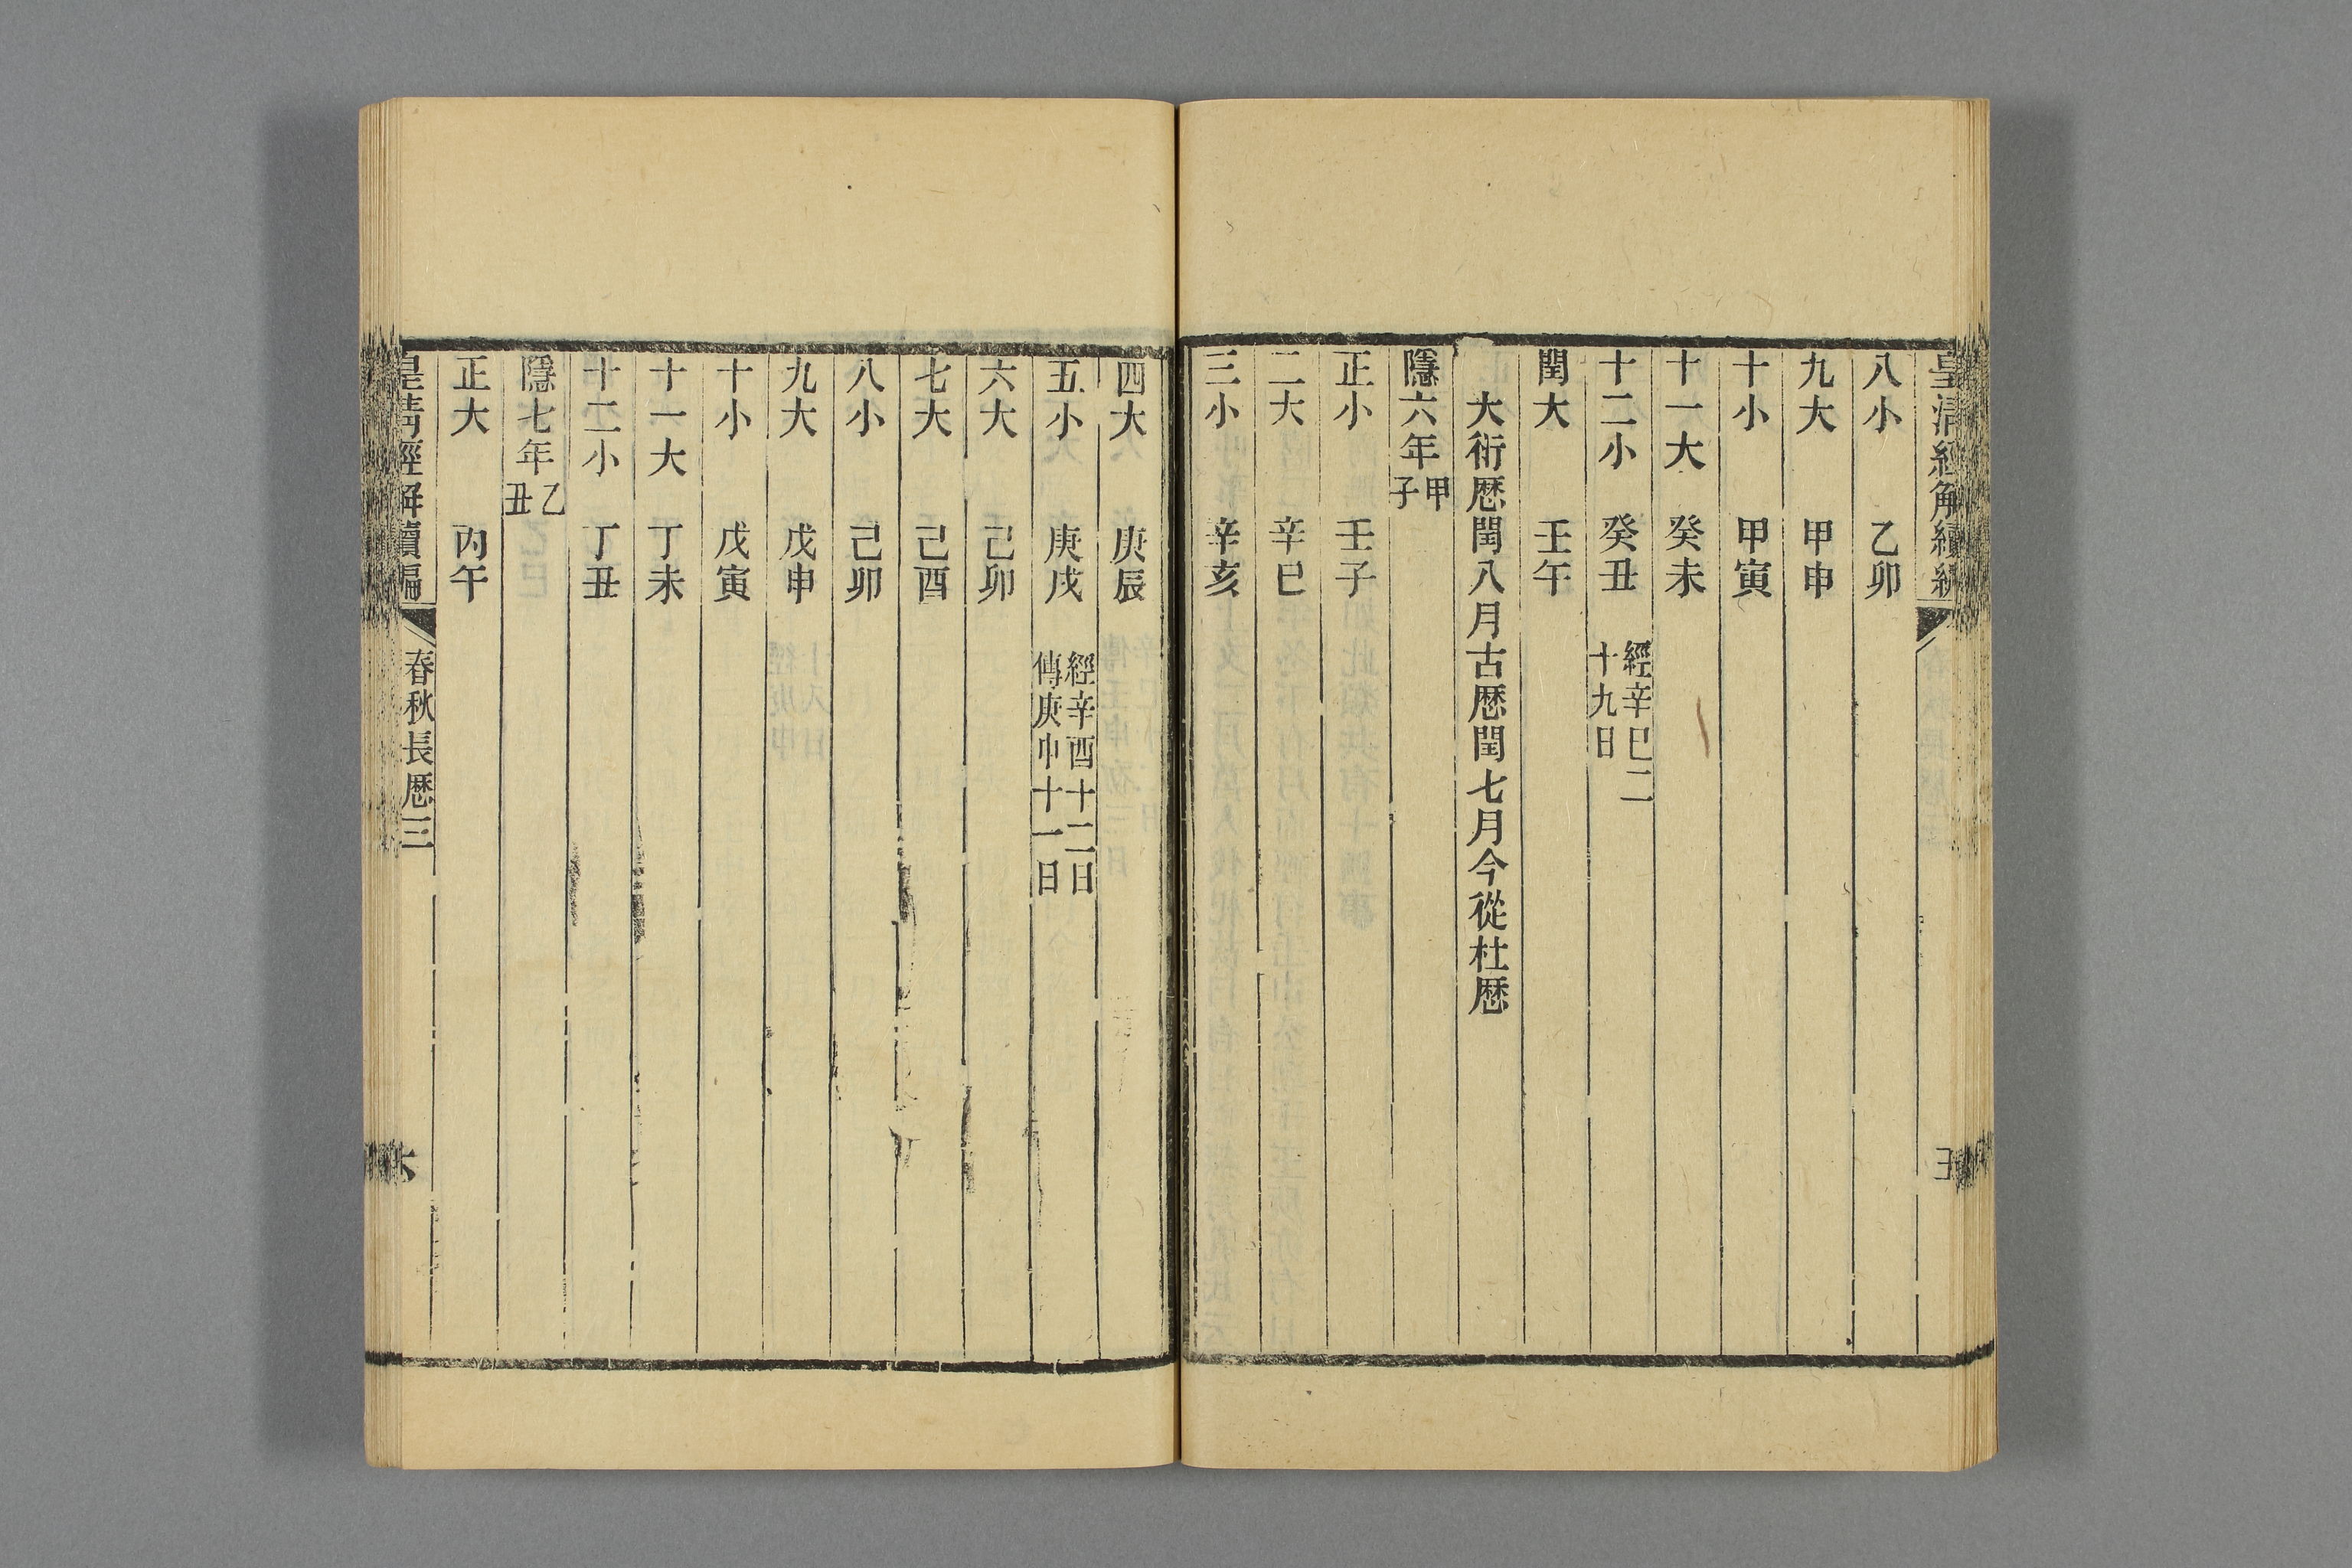 皇清經解續編
八小 乙卯
九大 甲申
十小 甲寅
十一大 癸未
十二小 癸丑 經辛巳二
十九日
閏大 壬午
大衍厯閏八月古厯閏七月今從杜厯
隱六年甲
子
正小 壬子
二大 辛巳
三小 辛亥
四大 庚辰
五小 庚戌 經辛酉十二日
傳庚申十一日
六大 己卯
七大 己酉
八小 己卯
九大 戊申
十小 戊寅
十一大 丁未
十二小 丁丑
隱七年乙
丑
正大 丙午
皇清經解續編 春秋長厯三 六